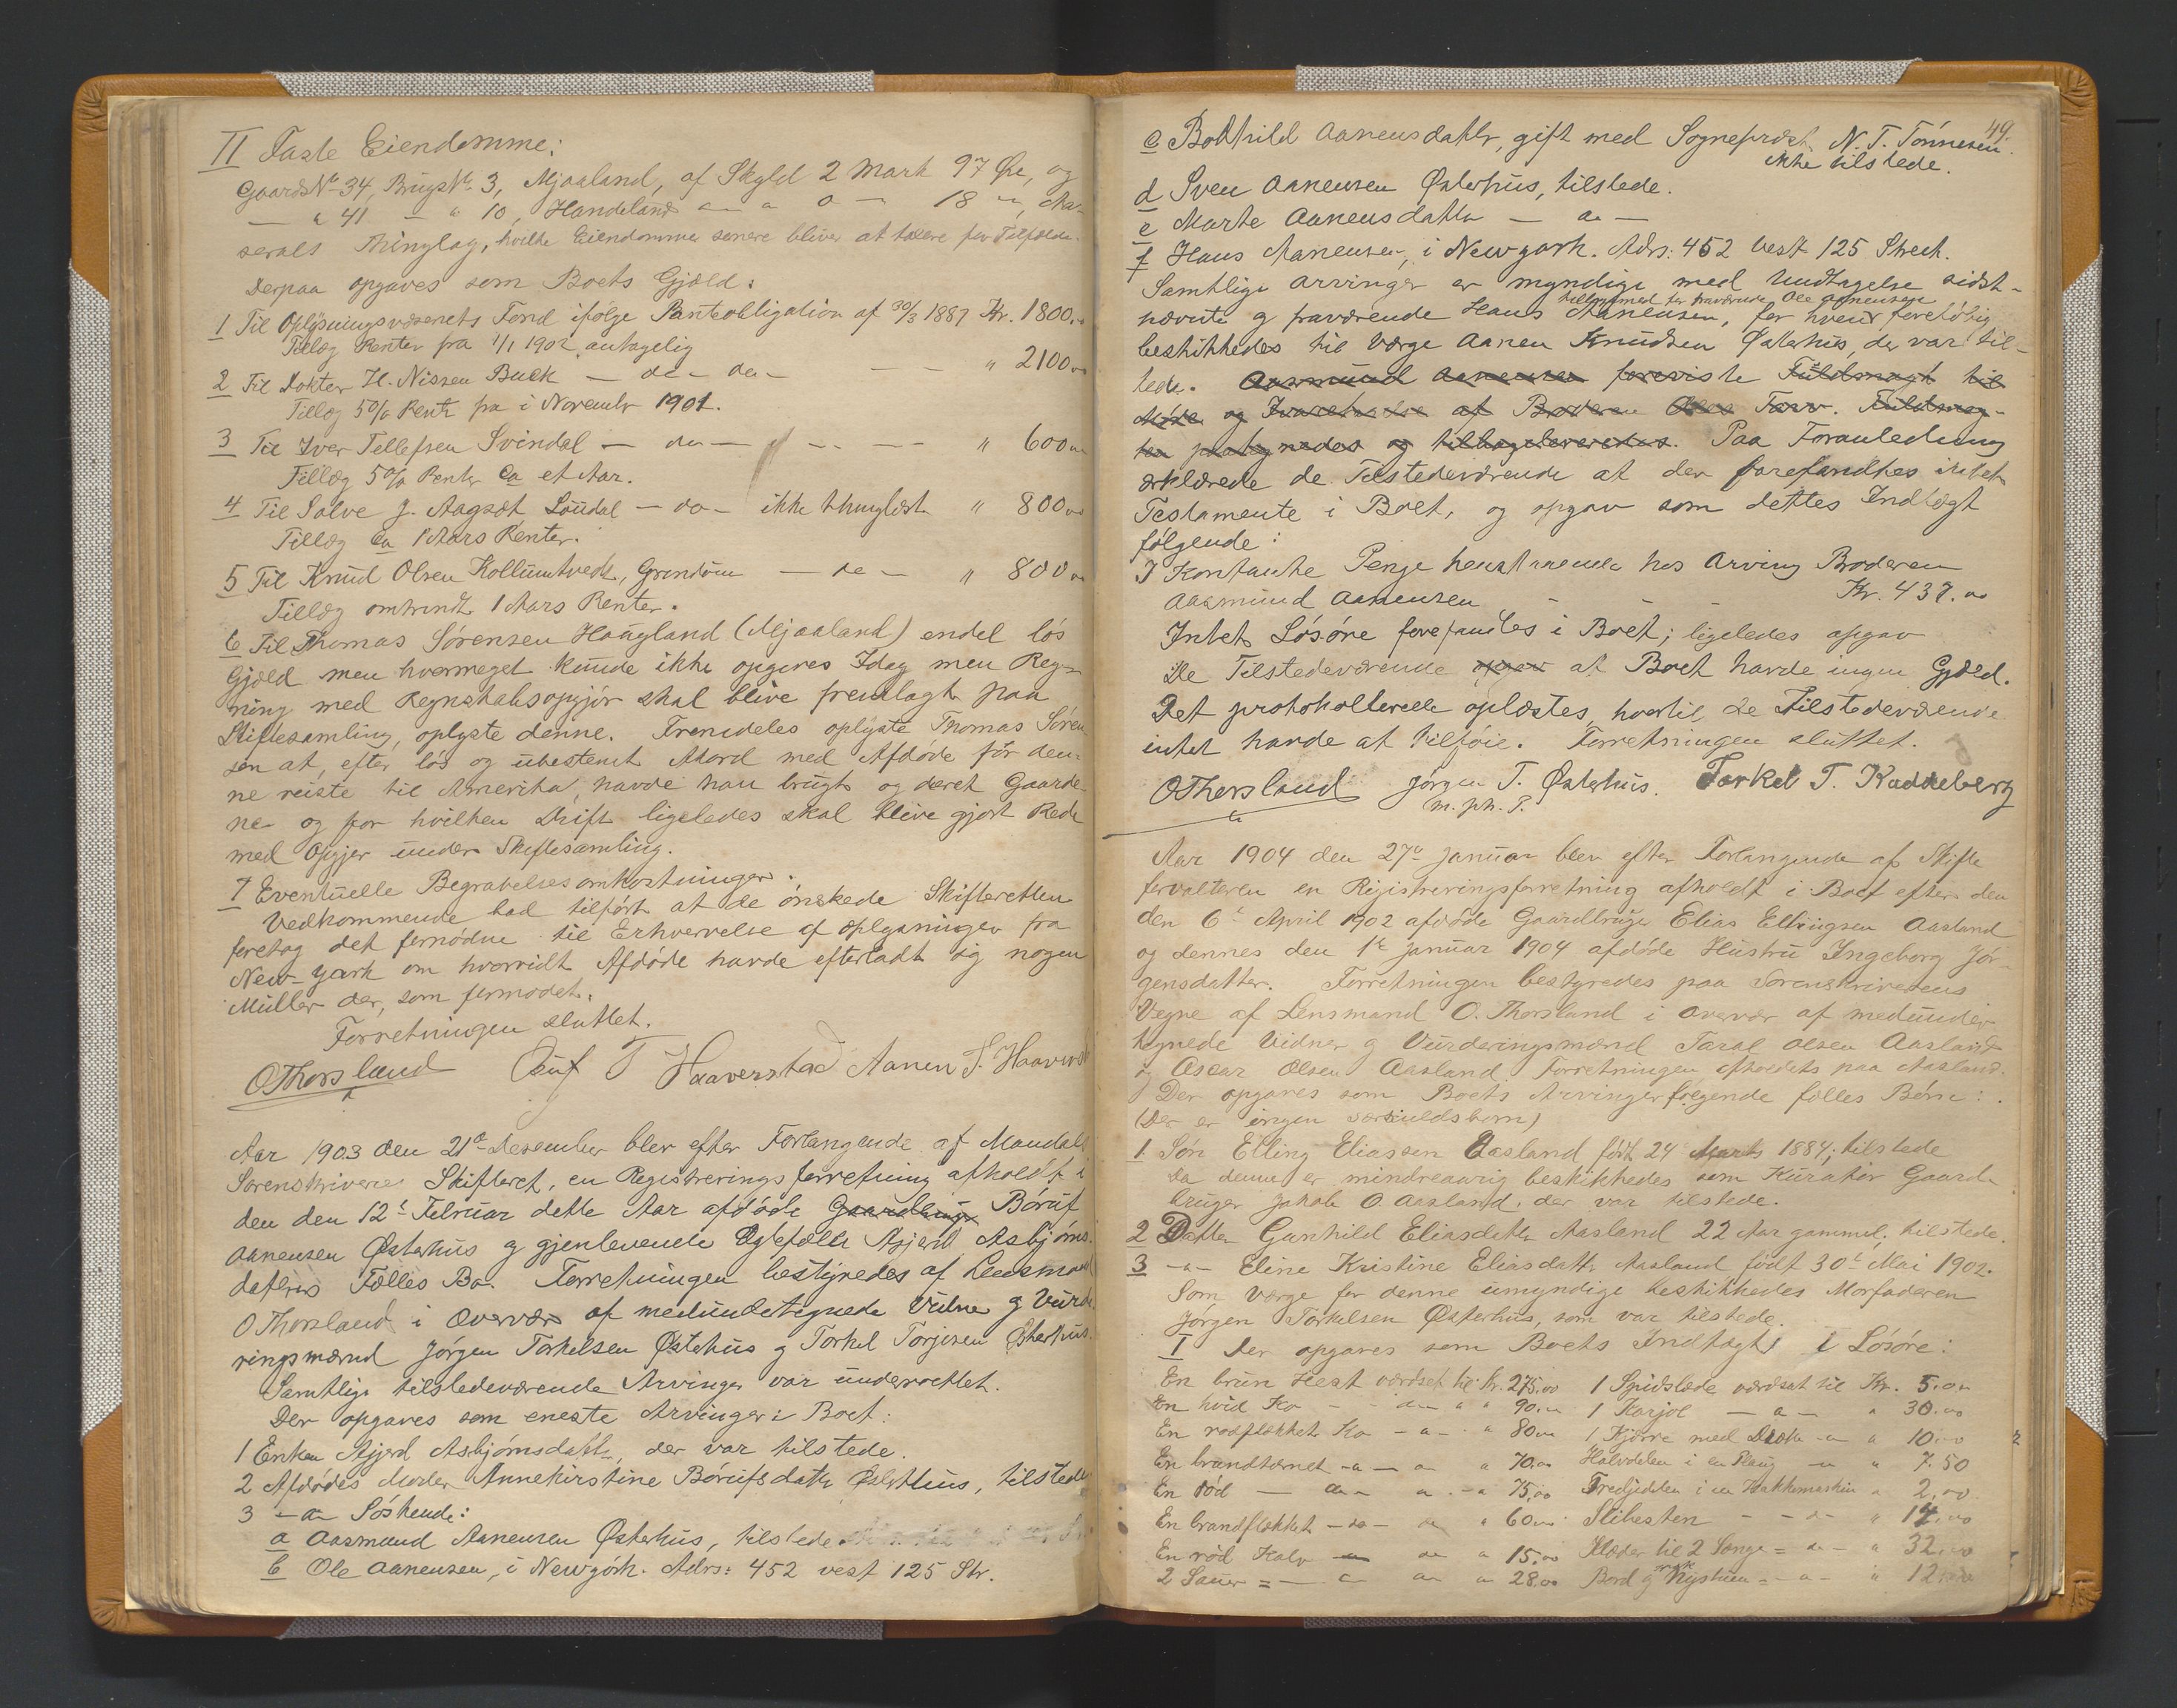 II Faste Eiendomme:
Gaards No 34, Brugs No 3, Mjaaland, af Skyld 2 Mark 97 Øre, og
— " 41 — " 10, Handeland — " — 0 — 18 — ,
seralt Thinglag, hvilke Eiendomme senere bliver at taxere
Derpaa opgaves som Boets Gjæld:
1 Til Oplysningsvæsenets Fond ifølge Panteobligation af 30/3 1887 Kr. 1800.00
Tillæg Renter fra 1/1 1902 antagelig
2 Til Doktor H. Nissen Buck — do — do — — — " 2100.00
Tillæg 5% Rente fra i November 1901.
3 Til Iver Tellefsen Svindal — do — — — " 600.00
Tillæg 5% Renter Ca et Aar.
4 Til Salve J. Aagsæt Løudal — do — ikke thinglæst " 800.00
Tillæg Ca 1 Aars Renter.
5 Til Knud Olsen Kollumtvedt, Grindum — do — " 800.00
Tillæg omtrendt 1 Aars Renter.
6 Til Thomas Sørensen Haugland (Mjaaland) endel løs
Gjæld men hvormeget kunde ikke opgives Idag men Reg-
ning med Regnskabsopgjør skal blive fremlagt paa
Skiftesamling, oplyste denne. Fremdeles oplyste Thomas Søren
sen at, efter løs og ubestemt Akord med Afdøde før den-
ne reiste til Amerika, havde han brugt og dyrket Gaarde-
ne og for hvilken Drift ligeledes skal blive gjort Rede
med Opgjør under Skiftesamling.
7 Eventuelle Begravelsesomkostninger.
Vedkommende bad tilført at de ønskede Skifteretten
foretog det fornødne til Erhvervelse af Oplysninger fra
New-York om hvorvidt Afdøde havde efterladt sig nogen
Midler der, som formodet.
Forretningen sluttet.
OThorsland T Haaverstad Aanen S. Haaverstad
Aar 1903 den 21de Desember blev efter Forlangende af Mandals
Sorenskriveri Skifteret, en Registreringsforretning afholdt i
den den 12te Februar dette Aar afdøde Gaardbruger Børuf
Aanensen Østerhus og gjenlevende Ægtefælle Asjerd Asbjørns
datters Fælles Bo. Forretningen bestyredes af Lensmand
O Thorsland i Overvær af medundertegnede Vidne og Vurde
ringsmænd Jørgen Torkelsen Østerhus og Torkel Torjesen Østerhus.
Samtlige tilstedeværende Arvinger var underrettet.
Der opgaves som eneste Arvinger i Boet:
1 Enken Asjerd Asbjørnsdatter, der var tilstede.
2 Afdødes Moder Annekirstine Børufsdatter Østerhus, tilstede
3 — " — Søskende:
a Aasmund Aanensen Østerhus, tilstede.
b Ole Aanensen, i Newyork. Adrs: 452 vest 125 Str.
49.
c Bolthild Aanensdatter, gift med Sogneprest N. T. Tønnesen.
ikke tilstede.
d Sven Aanensen Østerhus, tilstede.
e Marte Aanensdatter — " —
f Hans Aanensen, i Newyork. Adrs: 452 Vest 125 Street.
Samtlige Arvinger er myndige med Undtagelse sidst-
tilligemed for fraværende Ole Aanensen
nævnte og fraværende Hans Aanensen, for hvem foreløbig
beskikkedes til Værge Aanen Knudsen Østerhus, der var til-
stede. Aasmund Aanensen foreviste Fuldmagt til
Møde og Ivaretagelse af Broderen Oles Tarv. Fuldmag-
ten paategnedes og tilbageleveredes. Paa Foranledning
erklærede de Tilstedeværende at der forefandtes intet
Testamente i Boet, og opgav som dettes Indtægt
følgende:
I Kontante Penge henstaaende hos Arving Broderen
Aasmund Aanensen — — Kr. 437.00
Intet Løsøre forefandtes i Boet; ligeledes opgav
de Tilstedeværende opgav at Boet havde ingen Gjæld.
Det protokollerede oplæstes, hvortil de Tilstedeværende
intet havde at tilføie. Forretningen sluttet.
OThorsland Jørgen T. Østerhus. Torkel T. Kaddeberg
m. ph. P.
Aar 1904 den 27de Januar blev efter Forlangende af Skifte
forvalteren en Registreringsforretning afholdt i Boet efter den
den 6te April 1902 afdøde Gaardbruger Elias Ellingsen Aasland
og dennes den 1ste Januar 1904 afdøde Hustru Ingeborg Jør-
gensdatter. Forretningen bestyredes paa Sorenskriverens
Vegne af Lensmand O. Thorsland i Overvær af medunder-
tegnede Vidner og Vurderingsmænd Taral Olsen Aasland
og Oscar Olsen Aasland. Forretningen afholdets paa Aasland.
Der opgaves som Boets Arvinger følgende fælles Børn:
(Der er ingen særkuldsbørn)
1 Søn Elling Eliassen Aasland født 24 Marts 1884; tilstede
Da denne er mindreaarig beskikkedes som Kurator Gaard-
bruger Jakob O. Aasland, der var tilstede.
2 Datter Gunhild Eliasdatter Aasland 22 Aar gammel; tilstede.
3 — " — Eline Kristine Eliasdatter Aasland født 30te Mai 1902.
Som Værge for denne umyndige beskikkedes Morfaderen
Jørgen Torkelsen Østerhus, som var tilstede.
I Der opgaves som Boets Indtægt i Løsøre:
En brun Hest værdsat til Kr. 275.00 1 Spidslæde værdsat til Kr. 5.00
En hvid Ko — do " " 90.00 1 Karjol — " — " 30.00
En rødflækket Ko — " — " 80.00 1 Kjærre med — " " 10.00
En brandstjernet — " — " " 70.00 Halvdelen i en Plaug — " " 7.50
En rød — do — " — " 75.00 Tredjedelen i en Hakkemaskin " 2.00
En brandflækket — do — do " 60.00 Slibesten — — do — " 14.00
En rød Kalv — do " 15.00 Klæder til 2 Senge — do — " 32.00
2 Sauer — " — do " 28.00 Bord og — " — " 12.00